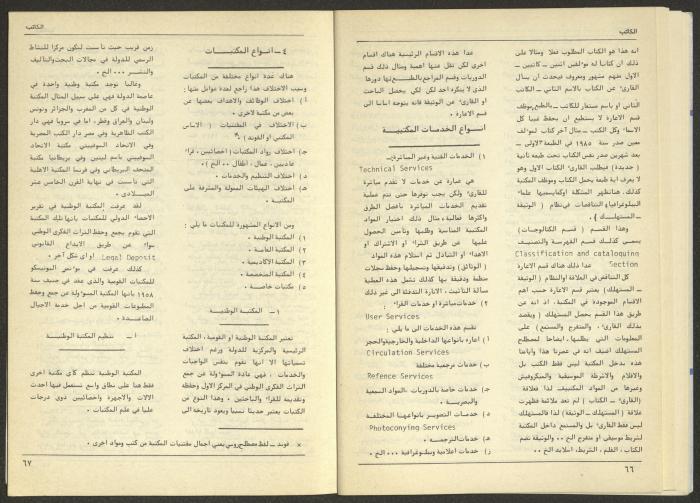 الكاتب
انه هذا هو الكتاب المطلوب فعلا ومثالا على
ذلك ان كتابا له مؤلفين اثنين ــ كاتبين ــ
الاول منهم مشهور ومعروف فيحدث ان يسأل
القارىء عن الكتاب بالاسم الثاني ــ الكاتب
الثاني او باسم مستعار للكاتب ــ بالطبع موظف
قسم الاعارة لا يستطيع ان يحفظ غيبا كل
الاسماء وكل الكتب ــ مثال آخر كتاب لمؤلف
معين صدر سنة ١٩٨٥ في الطبعة الاولى ــ
بعد شهرين صدر نفس الكتاب تحت طبعة ثانية
(جديدة) فيطلب القارىء الكتاب الاول وهو
لا يعرف اية طبعة يحمل الكتاب وموظف المكتبة
كذلك. هنا تظهر المشكلة
البيلوغرافيا التناقضات في نظام (الوثيقة
ــ المستهلك).
وهذا القسم (قسم الكتالوجات)
يسمى كذلك قسم الفهرسة والتصنيف
Classification and cataloquing
Section عدا ذلك هناك قسم الاعارة
كل التناقض في العلاقة والنظام (الوثيقة
ــ المستهلك) يعتبر قسم الاعارة حسب اهم
الاقسام الموجودة في المكتبة، اذ انه عن
طريق هذا القسم يحمل المستهلك (ويقصد
بذلك القارىء، والمتفرج والمستمع) على
المعلومات التي يطلبها، ايضاحا لمصطلح
المستهلك اضيف انه في عصرنا هذا وايامنا
هذه يدخل المكتبة ليس فقط الكتب بل
والافلام والاشرطة الموسيقية والميكروفيش
وغيرها من المواد المكتبية. لذا فعلاقة
(القارىء ــ الكتاب) لم تعد ملائمة فظهرت
علاقة (المستهلك ــ الوثيقة) لذا فالمستهلك
ليس فقط القارىء بل والمستمع داخل المكتبة
لشريط موسيقي او متفرج الخ ٠٠ والوثيقة تضم
الكتاب، الفلم، الشريط، اسلايد الخ ٠٠
عدا هذه الاقسام الرئيسية هناك اقسام
اخرى لكن تقل عنها اهمية ومثال ذلك قسم
الدوريات وقسم المراجع بالطبع لها دورها
الذي لا ينكره احد لكن لكي يحصل الباحث
او القارىء عن الوثيقة فانه يتوجه اساسا الى
قسم الاعارة.
انــواع الخدمات المكتبيـة
١) الخدمات الفنية وغير المباشرة:ــ
Technical Services
هي عبارة عن خدمات لا تقدم مباشرة
للقارىء ولكن يجب توفرها حتى تتم عملية
تقديم الخدمات المباشرة بأفضل الطرق
واكثرها فعالية، مثال ذلك اختيار المواد
المكتبية المناسبة وطلبها وتأمين الحصول
عليها عن طريق الشراء او الاشتراك او
الاهداء او التبادل ثم استلام هذه المواد
(الوثائق) وتدقيقها وتسجيلها وحفظ سجلات
منظمة وتدقيقة بها كذلك تشمل هذه العملية
مسألة التأثيث، الانارة التدفئة الى غير ذلك
٢) خدمات مباشرة او خدمات القراء:
User Services
تقسم هذه الخدمات الى ما يلي:
١) اعارة بانواعها الداخلية والخارجية والحجز
Circulation Services
ب) خدمات مرجعية مختلفة
Refence Services
جـ) خدمات خاصة بالدوريات ــ المواد السمعية
والبصريـة.
د) خدمـات التصويـر بانواعهـا المختلفـة
Photoconying Services
هـ) خدمات الترجمـة.
ز) خدمات اعلامية وببلوغرافية ٠٠٠ الخ.
٦٦
الكاتب
٤ــ انـواع المكتبـــات
هناك عدة انواع مختلفة من المكتبات
وسبب الاختلاف هذا راجع لعدة عوامل منها:
أ) اختلاف الوظائف والاهداف بعضها عن
بعض من مكتبة لاخرى.
ب) الاختلاف في المقتنيات (الاساس
المكتبي او الفوند) ×
جـ) اختلاف رواد المكتبات (اخصائيين، قراء
عاديين، عمال، اطفال ٠٠ الخ).
د) اختلاف التنظيم والخدمات.
هـ) اختلاف الهيئات الممولة والمشرفة على
المكتبة.
ومن الانواع المشهورة للمكتبات ما يلي:
١) المكتبة الوطنية.
٢) المكتبة العامـة.
٣) المكتبة الاكاديمية.
٤) المكتبة المتخصصة.
٥) مكتبات خاصـة.
١ــ المكتبة الوطنيـــة
تعتبر المكتبة الوطنية او القومية، المكتبة
الرئيسية والمركزية للدولة ورغم اختلاف
تسمياتها الا انها تقوم بنفس الواجبات
والخدمات، فهي عادة المسؤولة عن جمع
التراث الفكري الوطني في المركز الاول وحفظة
وتقديمه للقراء والباحثين. وهذا النوع من
الكتبات يعتبر حديثا نسبيا ويعود تاريخة الى
زمن قريب حيث تأسست لتكون مركزا للنشاط
الرسمي للدولة في مجالات البحث والتأليف
والنشـر ٠٠٠ الخ.
وغالبا توجد مكتبة وطنية واحدة في
عاصمة الدولة فهي على سبيل المثال المكتبة
الوطنية في كل من المغرب والجزائر وتونس
ولبنان والعراق وقطر، اما في سوريا فهي دار
الكتب الظاهرية وفي مصر دار الكتب المصرية
وفي الاتحاد السوفييتي مكتبة الاتحاد
السوفييتي باسم لينين وفي بريطانيا مكتبة
المتحف البريطاني وفي فرنسا المكتبة الاهلية
التي تأسست في نهاية القرن الخامس عشر
الميــلادي.
لقد عرفت المكتبة الوطنية في تقرير
الاحصاء الدولي للمكتبات بأنها تلك المكتبة
التي تقوم بجمع وحفظ التراث الفكري الوطني
سواء عن طريق الايداع القانوني
Legal Deposit او أي شكل آخر.
كذلك عرفت في مؤتمر اليونيسكو
للمكتبات القومية والذي عقد في صيف سنة
١٩٥٨ بانها المكتبة المسؤولة عن جمع وحفظ
المطبوعات القومية من اجل خدمة الاجيال
الصاعــدة.
أ ــ تنظيم المكتبة الوطنيــة
المكتبة الوطنية تنظم كأي مكتبة اخرى
فقط هنا على نطاق واسع تستعمل فيها احدث
الآلات والاجهزة واخصائيين ذوي درجات
عليا في علم المكتبات.
× فوند ــ لفظ مصطلح روسي يعني اجمال مقتنيات المكتبة من كتب ومواد اخرى.
٦٧